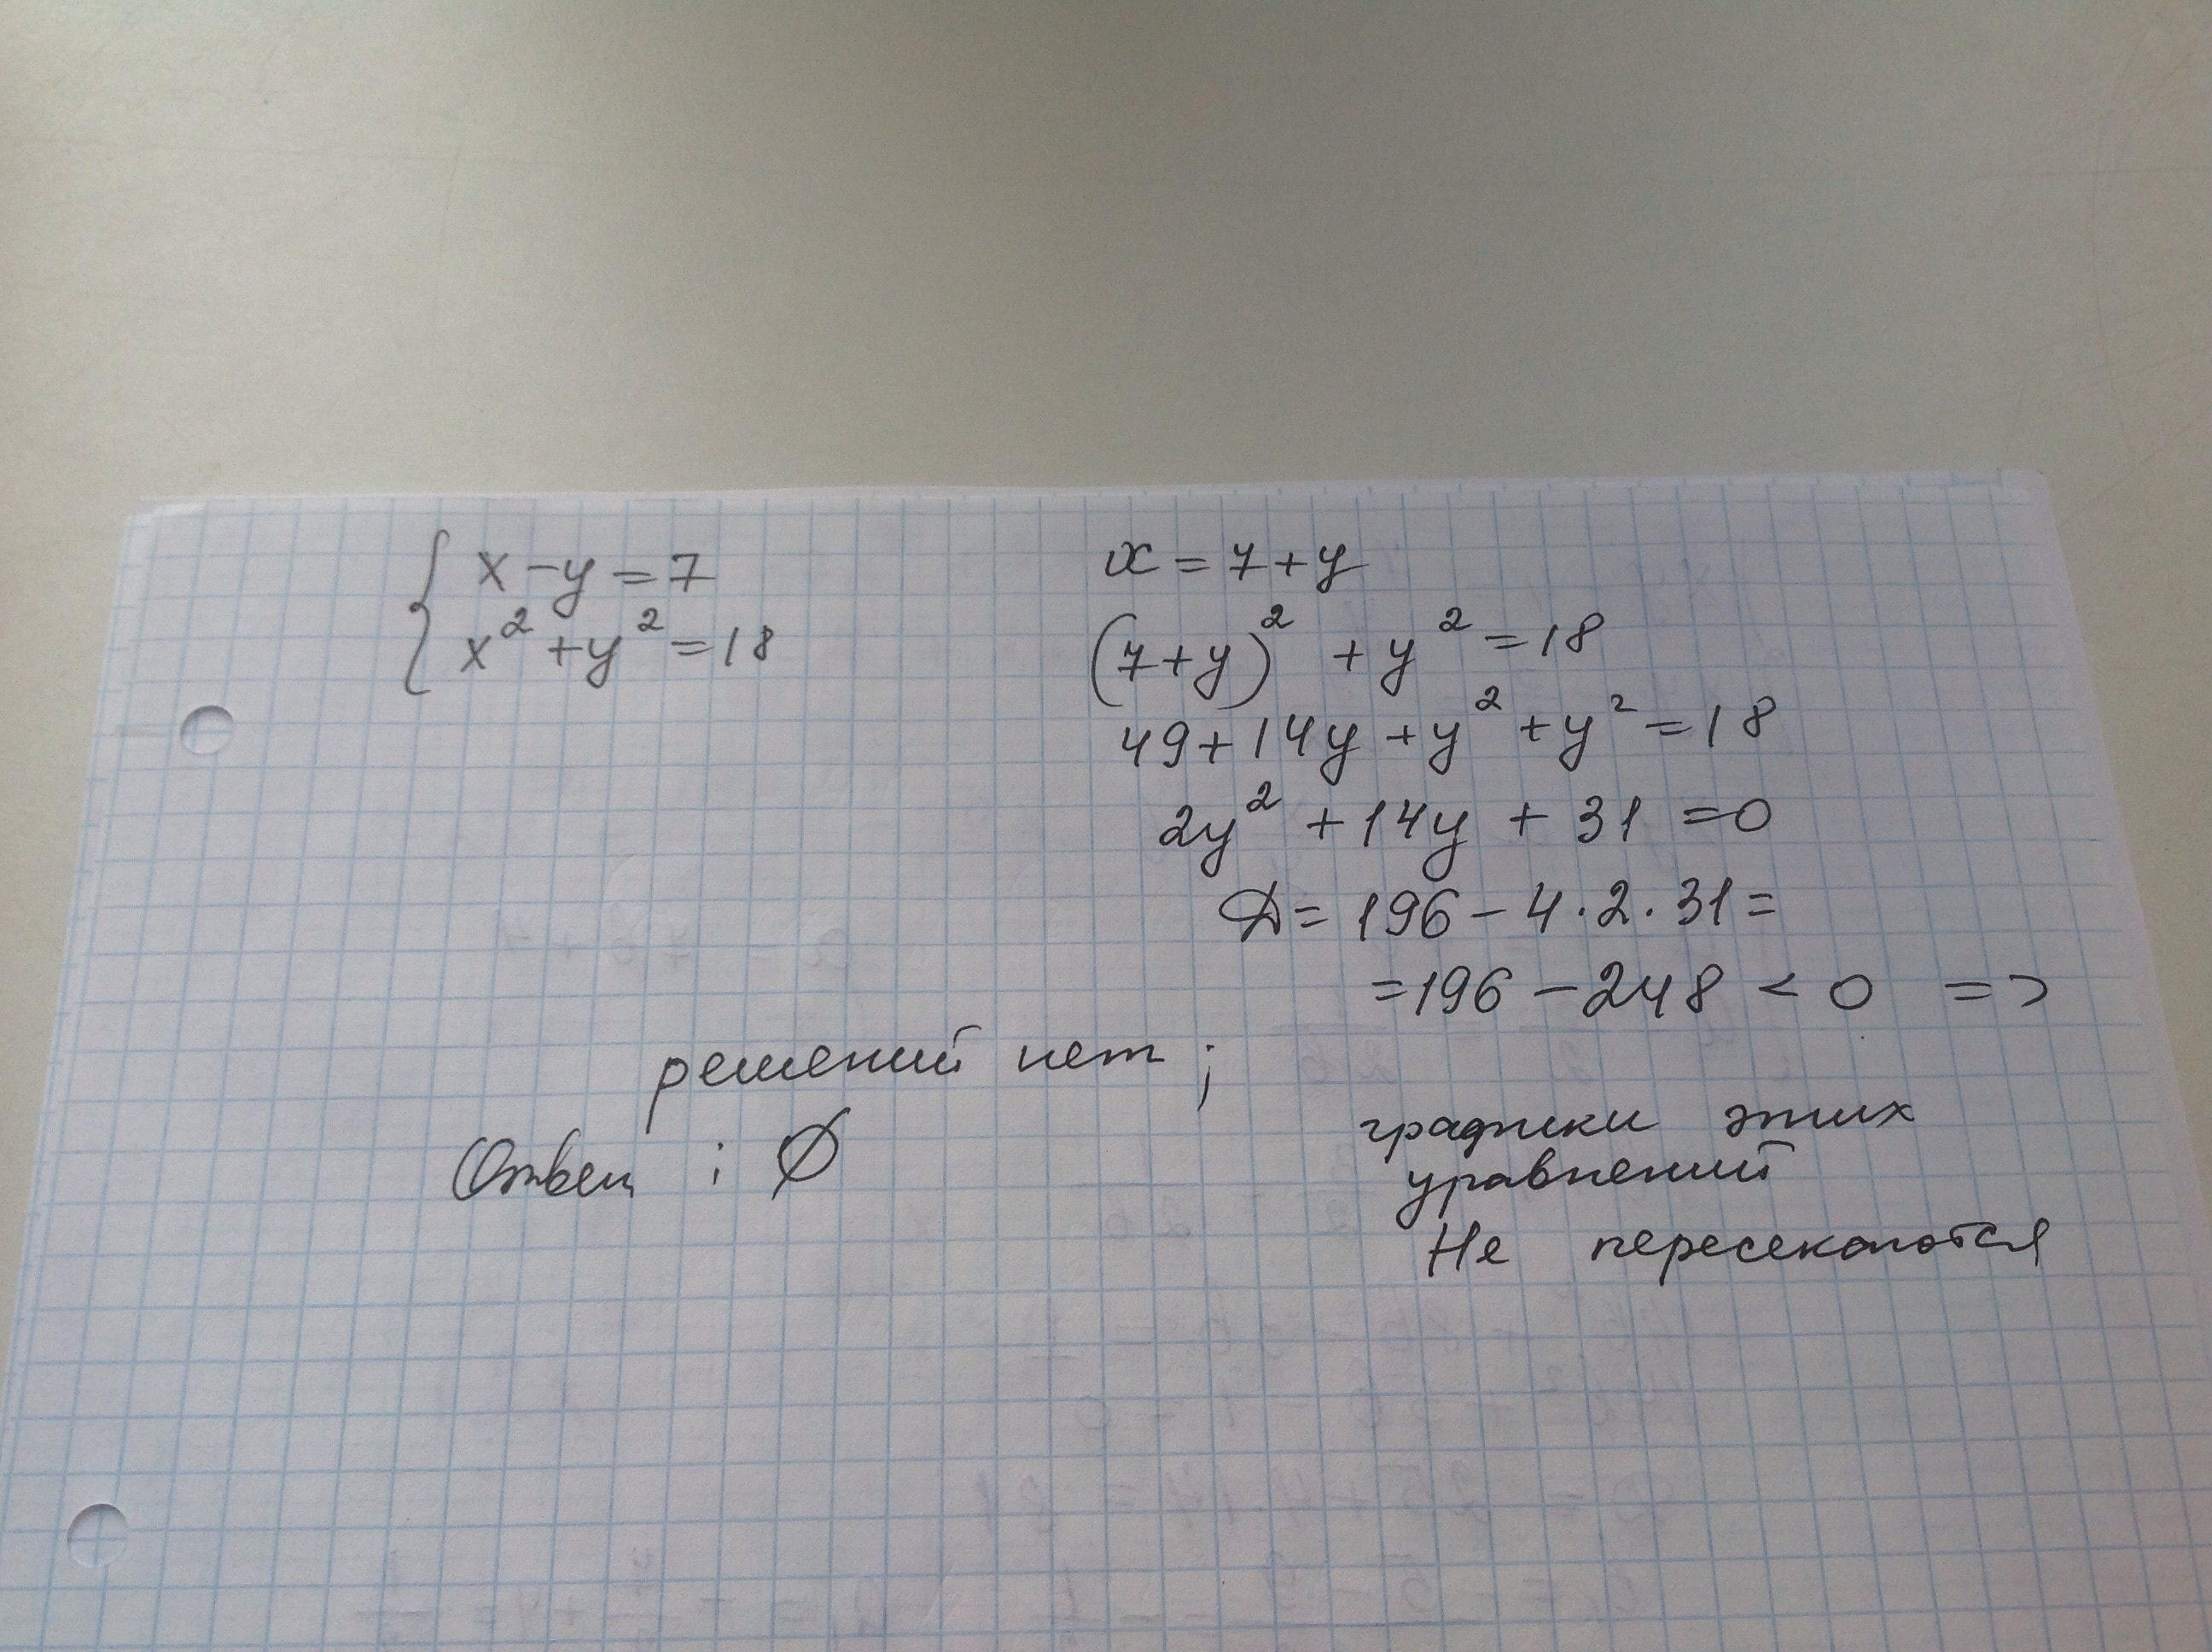 { x - y = 7
x² + y² = 18
x = 7 + y
(7 + y)² + y² = 18
49 + 14y + y² + y² = 18
2y² + 14y + 31 = 0
D = 196 - 4 · 2 · 31 =
= 196 - 248 < 0 =>
решений нет ;
Ответ : ∅
графики этих
уравнений
Не пересекаются